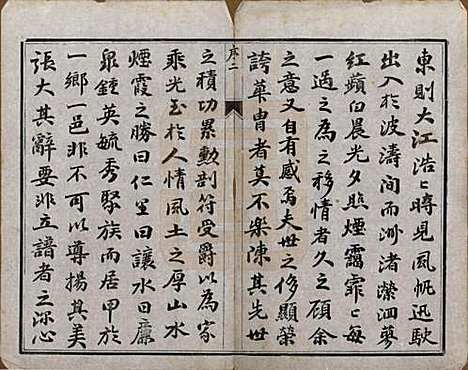 東則大江浩〻時見風帆迅駛
出入於波濤間而洲渚縈洄蓼
紅蘋白晨光夕照煙靄霏〻每
一過之為之移情者久之顧余
之意又自有感焉夫世之侈顯榮
誇華冑者莫不樂陳其先世
序二
之積功累勳剖符受爵以為家
乘光至於人情風土之厚山水
煙霞之勝曰仁里曰讓水曰廉
泉鍾英毓秀聚族而居甲於
一鄉一邑非不可以尊揚其美
張大其辭要非立譜者之深心